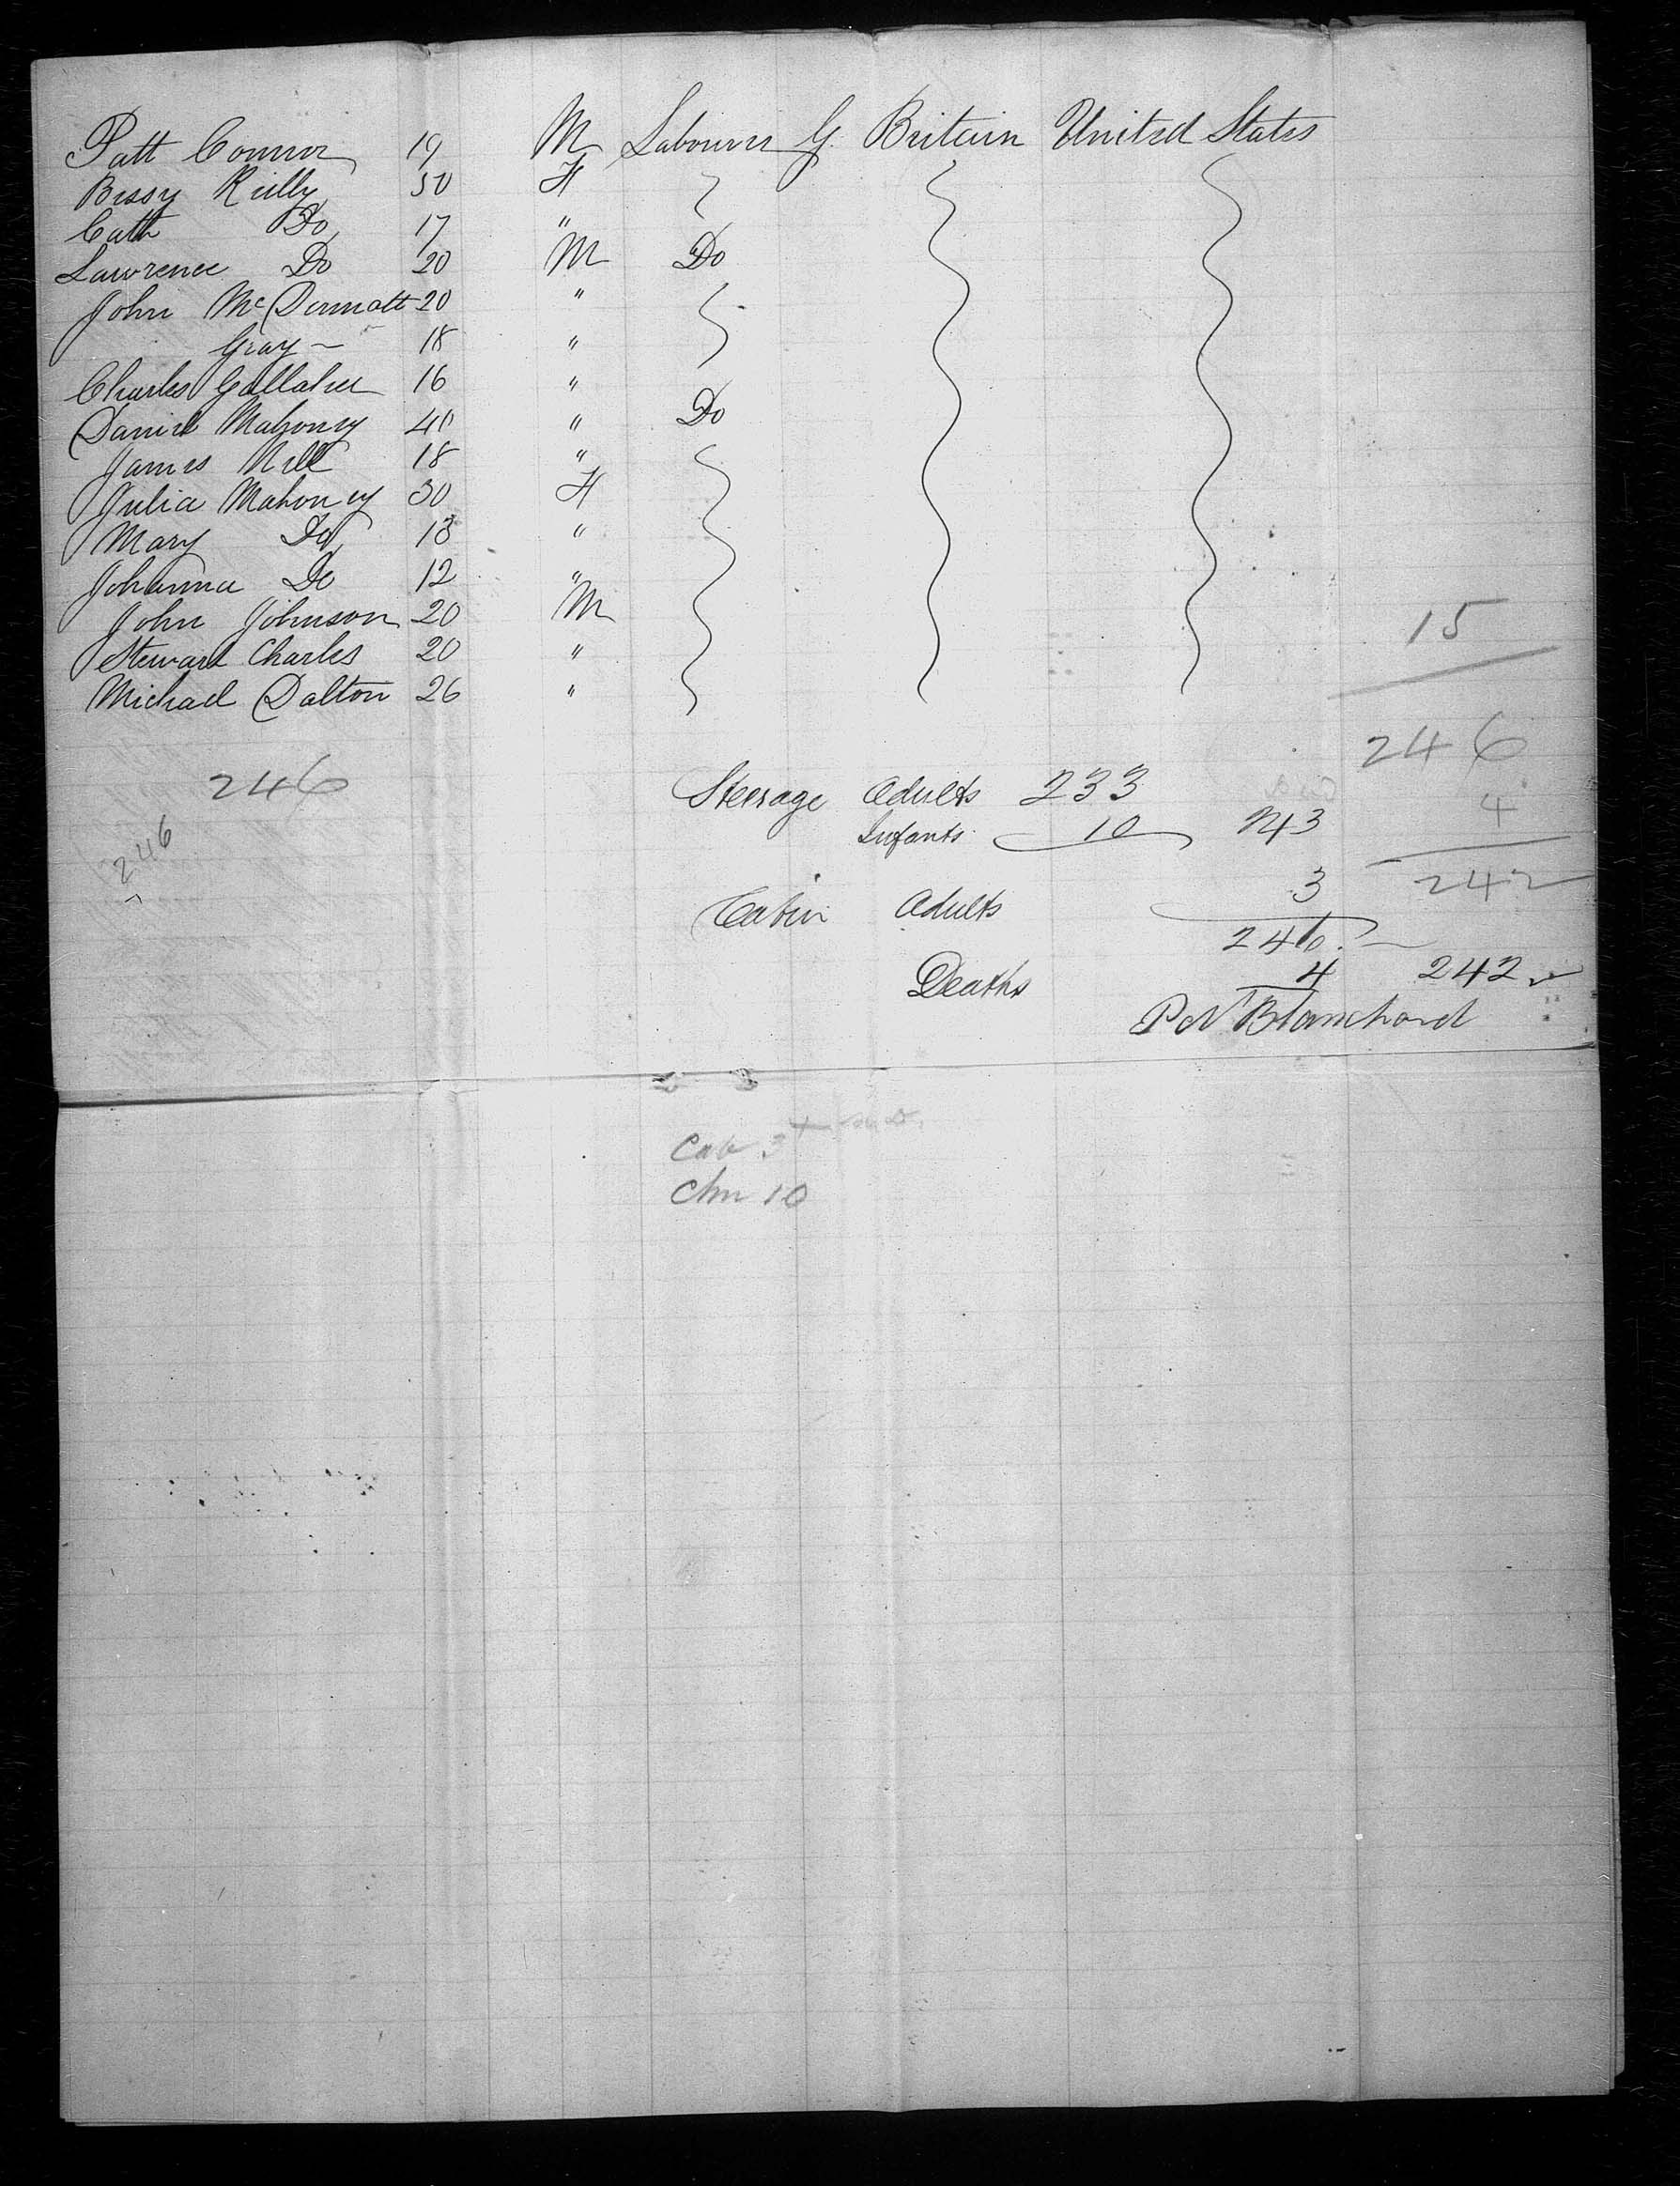 Patt Connor 19 M Labourer G. Britain United States
Bessy Reilly 50 F
Cath Do 17 "
Lawrence Do 20 M Do
John McDermott 20 "
Gray — 18 "
Charles Gallaher 16 "
Daniel Mahoney 40 " Do
James Nill 18 "
Julia Mahoney 30 F
Mary Do 13 "
Johanna Do 12 "
John Johnson 20 M
Stewart Charles 20 "
Michael Dalton 26 "
15
246
246
246
Steerage Adults 233
Infants 10 243
4
242
Cabin Adults 3
246
Deaths 4 242
Blanchard
Cab 3
Chn 10